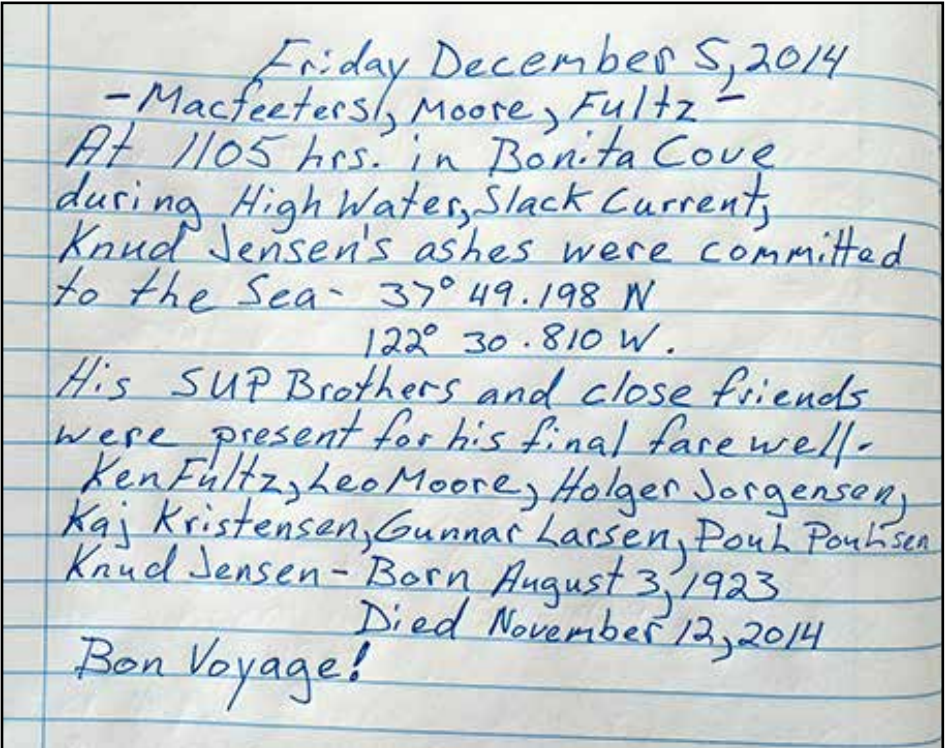 Friday December 5, 2014
- Macfeeters, Moore, Fultz -
At 1105 hrs. in Bonita Cove
during High Water, Slack Current,
Knud Jensen's ashes were committed
to the Sea - 37° 49.198 N
122° 30.810 W.
His SUP Brothers and close friends
were present for his final farewell.
Ken Fultz, Leo Moore, Holger Jorgensen,
Kaj Kristensen, Gunnar Larsen, Poul Poulsen
Knud Jensen - Born August 3, 1923
Died November 12, 2014
Bon Voyage!